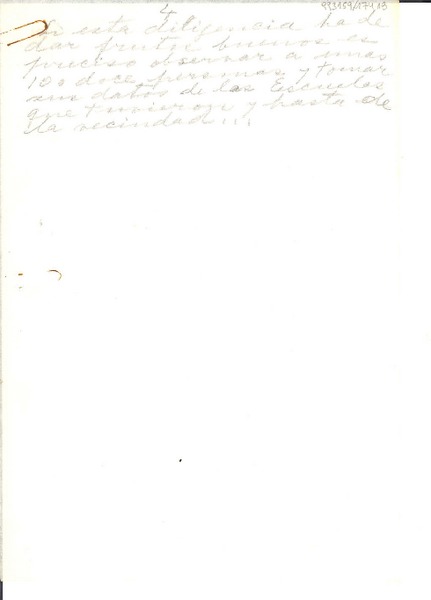 993159/17419
4
Si esta diligencia ha de
dar frutos buenos es
preciso observar a unas
10 o doce personas y tomar
sus datos de las Escuelas
que tuvieron y hasta de
la vecindad...